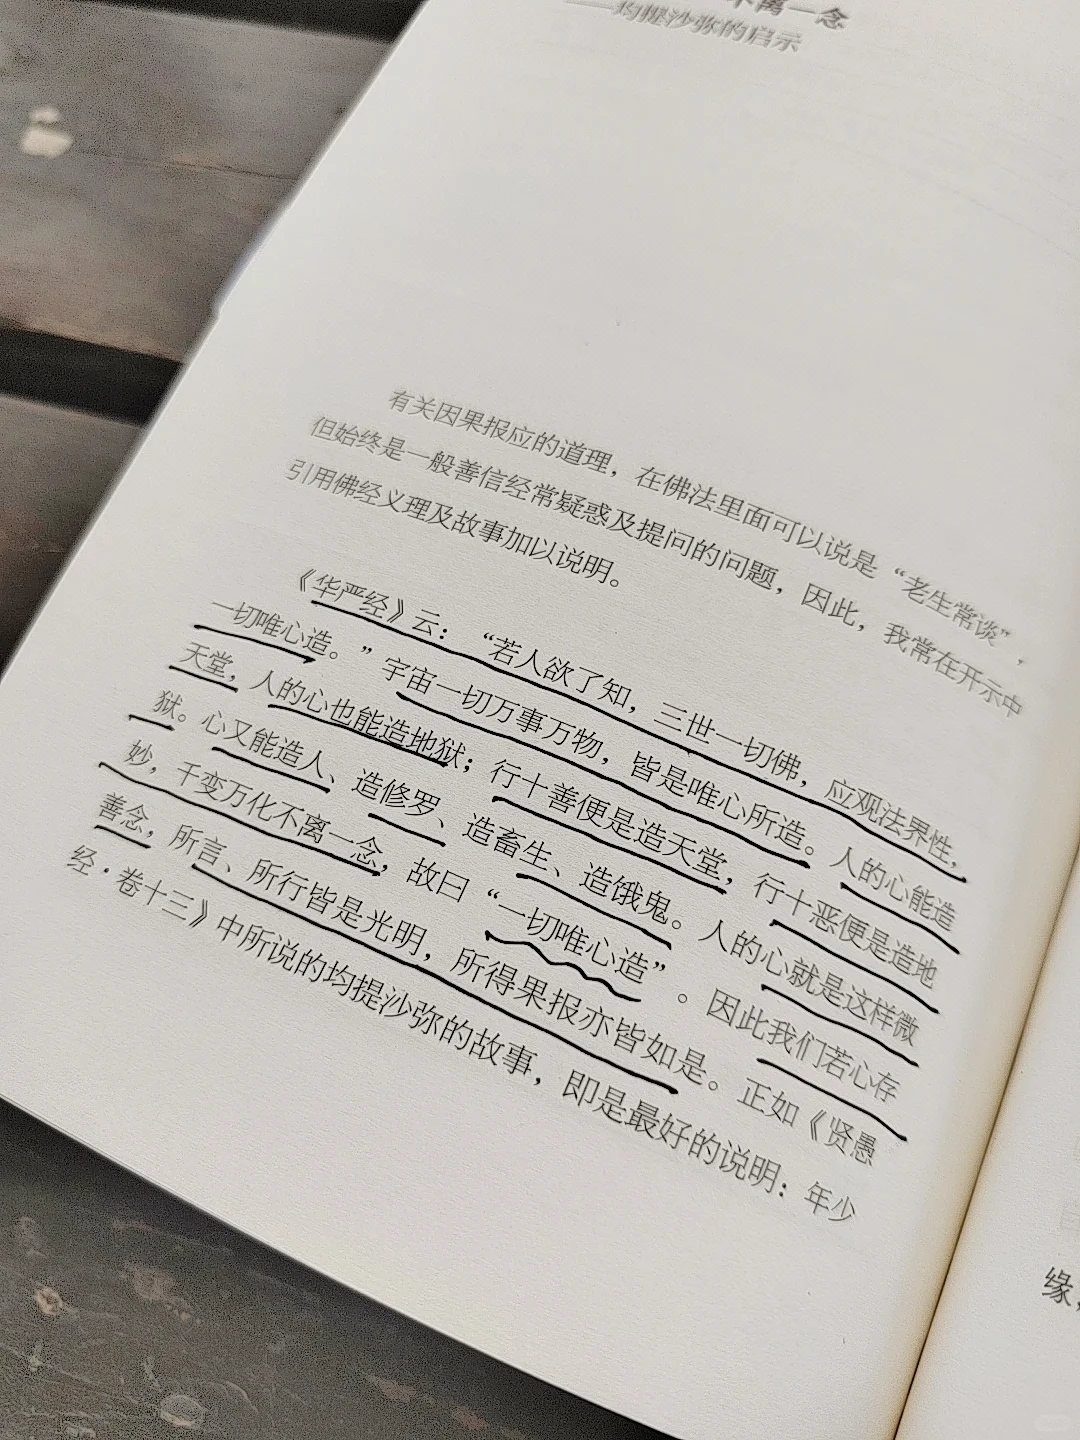 不离一念
——均提沙弥的启示
有关因果报应的道理，在佛法里面可以说是“老生常谈”，
但始终是一般善信经常疑惑及提问的问题，因此，我常在开示中
引用佛经义理及故事加以说明。
《华严经》云：“若人欲了知，三世一切佛，应观法界性，
一切唯心造。”宇宙一切万事万物，皆是唯心所造。人的心能造
天堂，人的心也能造地狱；行十善便是造天堂，行十恶便是造地
狱。心又能造人、造修罗、造畜生、造饿鬼。人的心就是这样微
妙，千变万化不离一念，故曰“一切唯心造”。因此我们若心存
善念，所言、所行皆是光明，所得果报亦皆如是。正如《贤愚
经·卷十三》中所说的均提沙弥的故事，即是最好的说明：年少
缘，